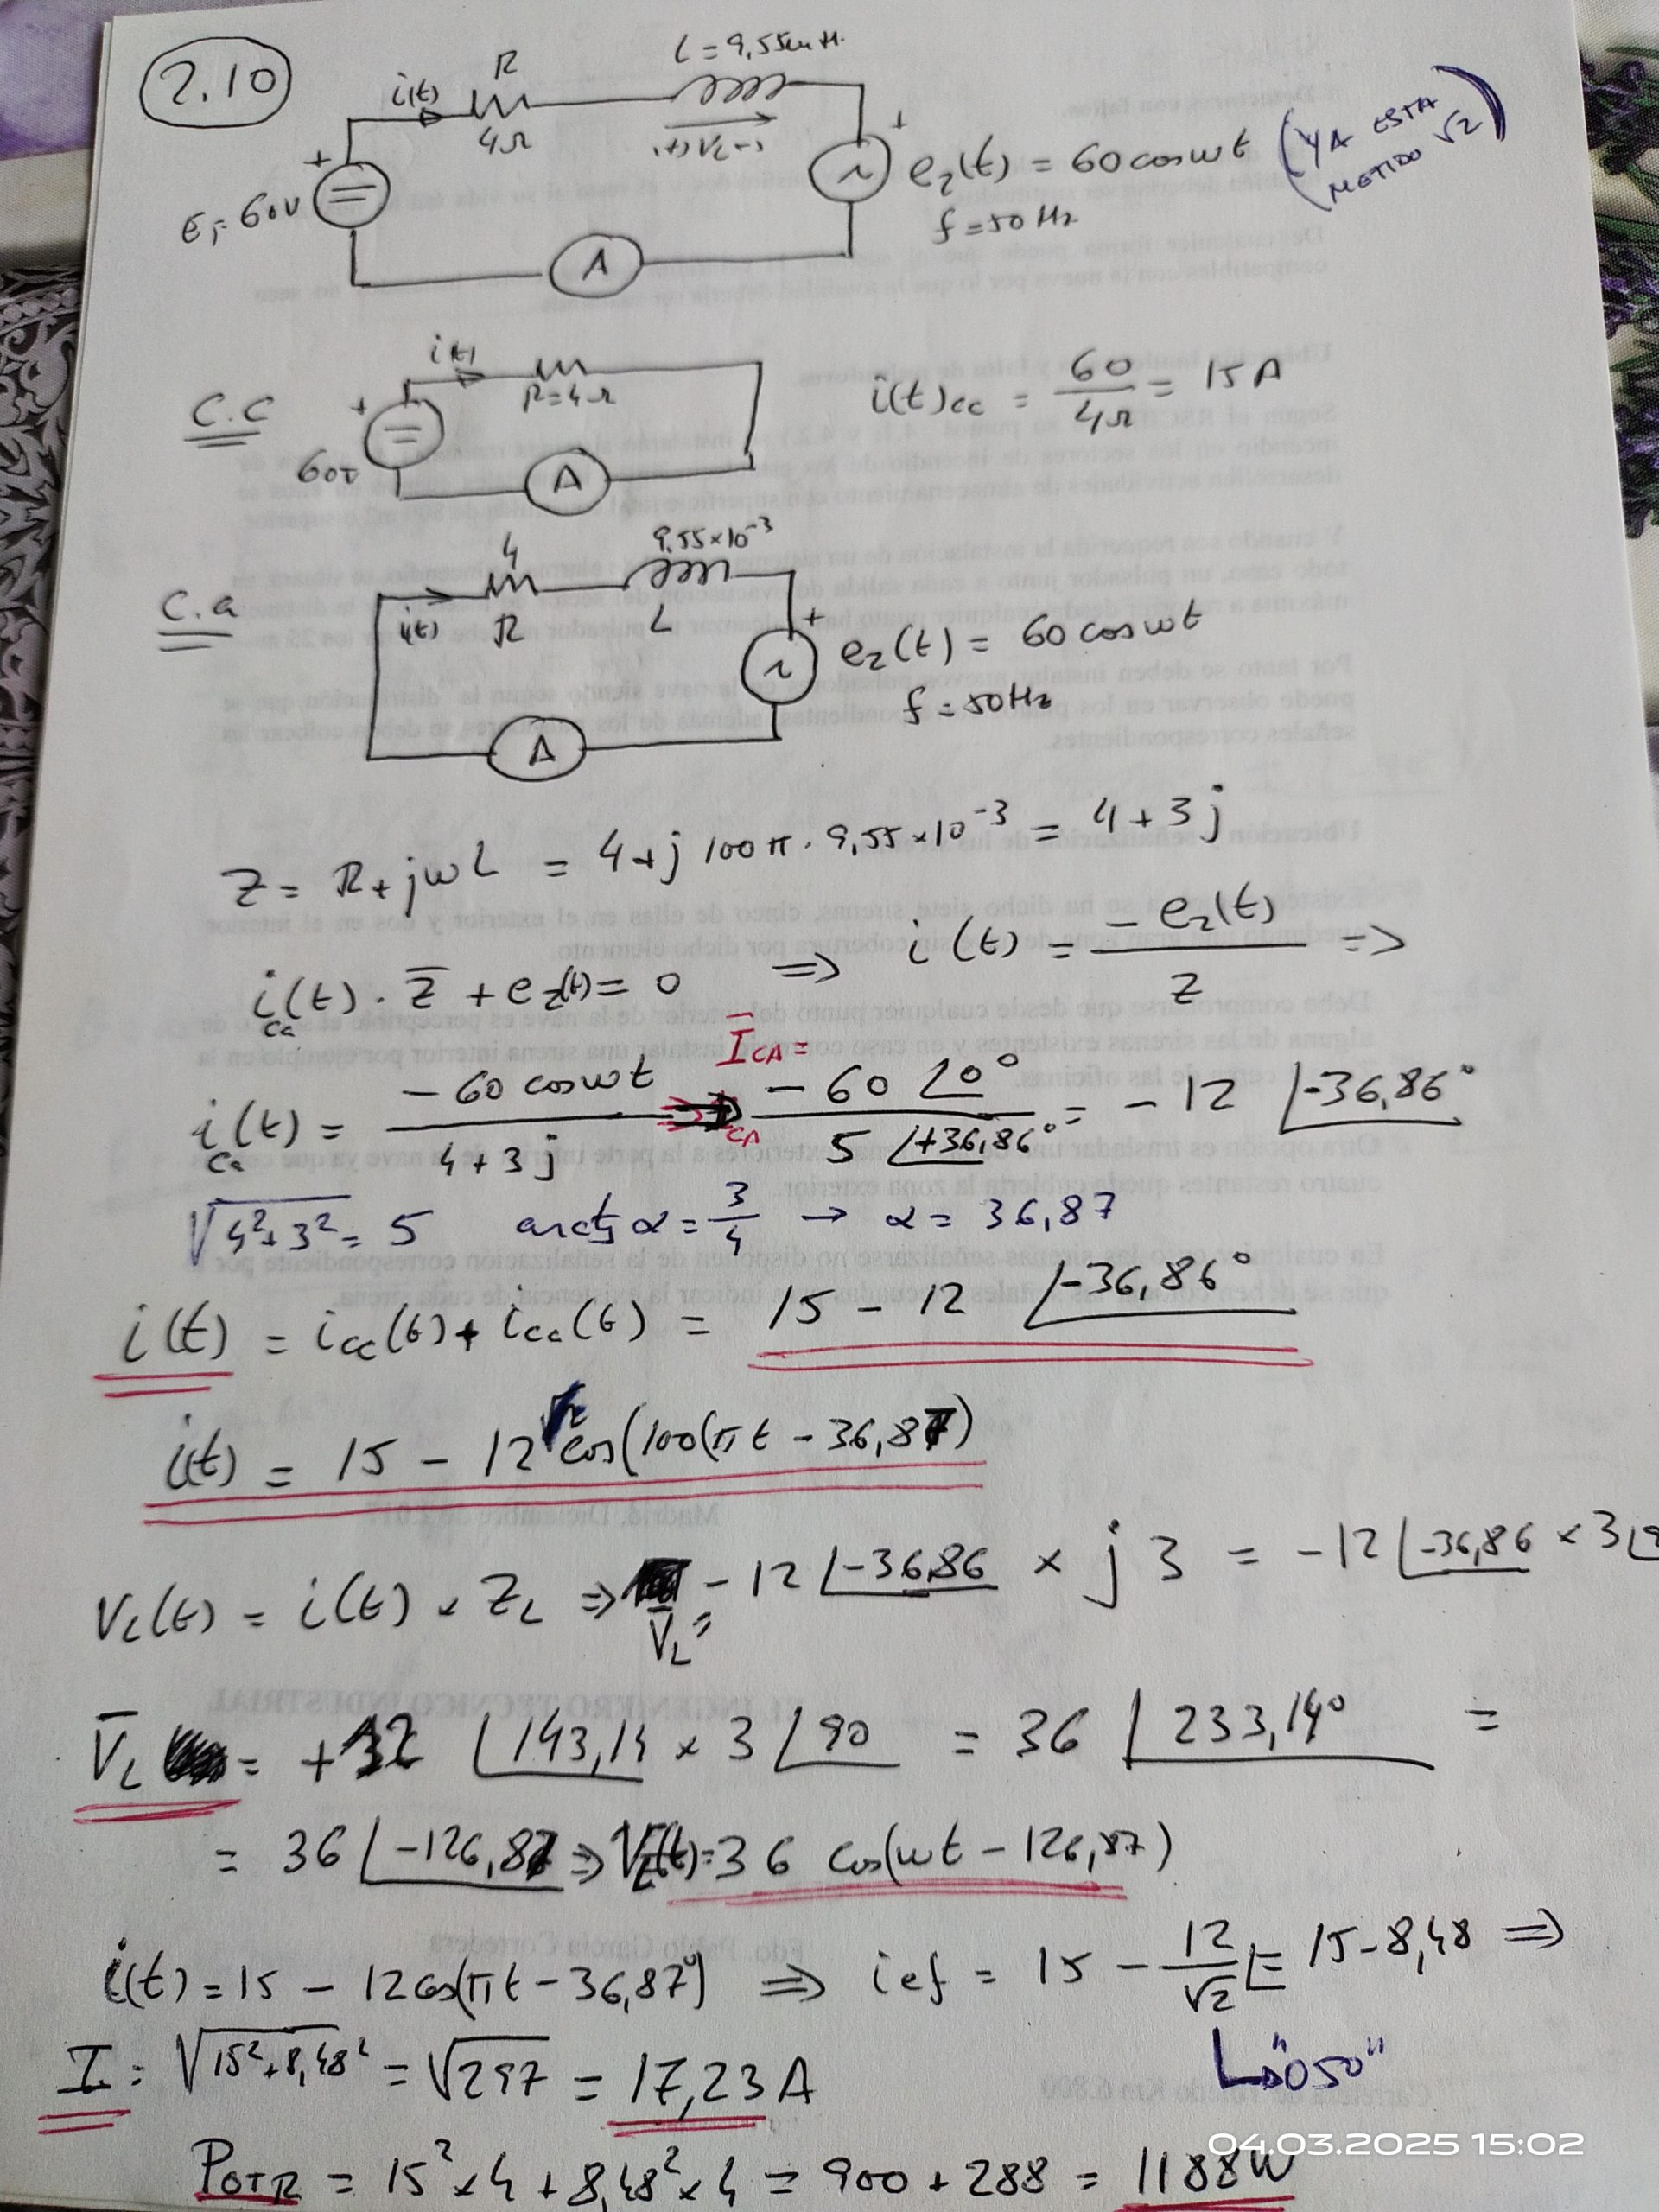 2.10
R
L = 9,55 mH.
i(t)
4Ω
+
E₁ = 60V
(+) VL (-)
+
e₂(t) = 60 cos wt (YA ESTA METIDO √2)
f = 50 Hz
A
C.C
i(t)
R = 4Ω
+
60V
A
i(t)cc = 60/4Ω = 15 A
C.a
4
9,55×10⁻³
i(t)
R
L
+
e₂(t) = 60 cos wt
f = 50 Hz
A
Z = R + jwL = 4 + j 100π · 9,55×10⁻³ = 4 + 3j
i(t)ca · Z̅ + e₂(t) = 0 ⇒ i(t) = -e₂(t)/Z ⇒
I̅CA =
i(t)ca = -60 cos wt/(4 + 3j) ⇒ CA -60 ∠0°/(5 ∠+36,86°) = -12 ∠-36,86°
√(4²+3²) = 5 arctg α = 3/4 → α = 36,87
i(t) = icc(t) + ica(t) = 15 - 12 ∠-36,86°
i(t) = 15 - 12 cos(100(πt - 36,87)
VL(t) = i(t) × ZL ⇒ V̅L = -12 ∠-36,86 × j 3 = -12 ∠-36,86 × 3 ∠9
V̅L = +12 ∠143,14 × 3 ∠90 = 36 ∠233,14° =
= 36 ∠-126,87 ⇒ VL(t) = 36 cos(wt - 126,87)
i(t) = 15 - 12 cos(πt - 36,87°) ⇒ ief = 15 - 12/√2 = 15 - 8,48 ⇒
↳ "OSO"
I = √(15² + 8,48²) = √297 = 17,23 A
POTR = 15² × 4 + 8,48² × 4 = 900 + 288 = 1188W
04.03.2025 15:02